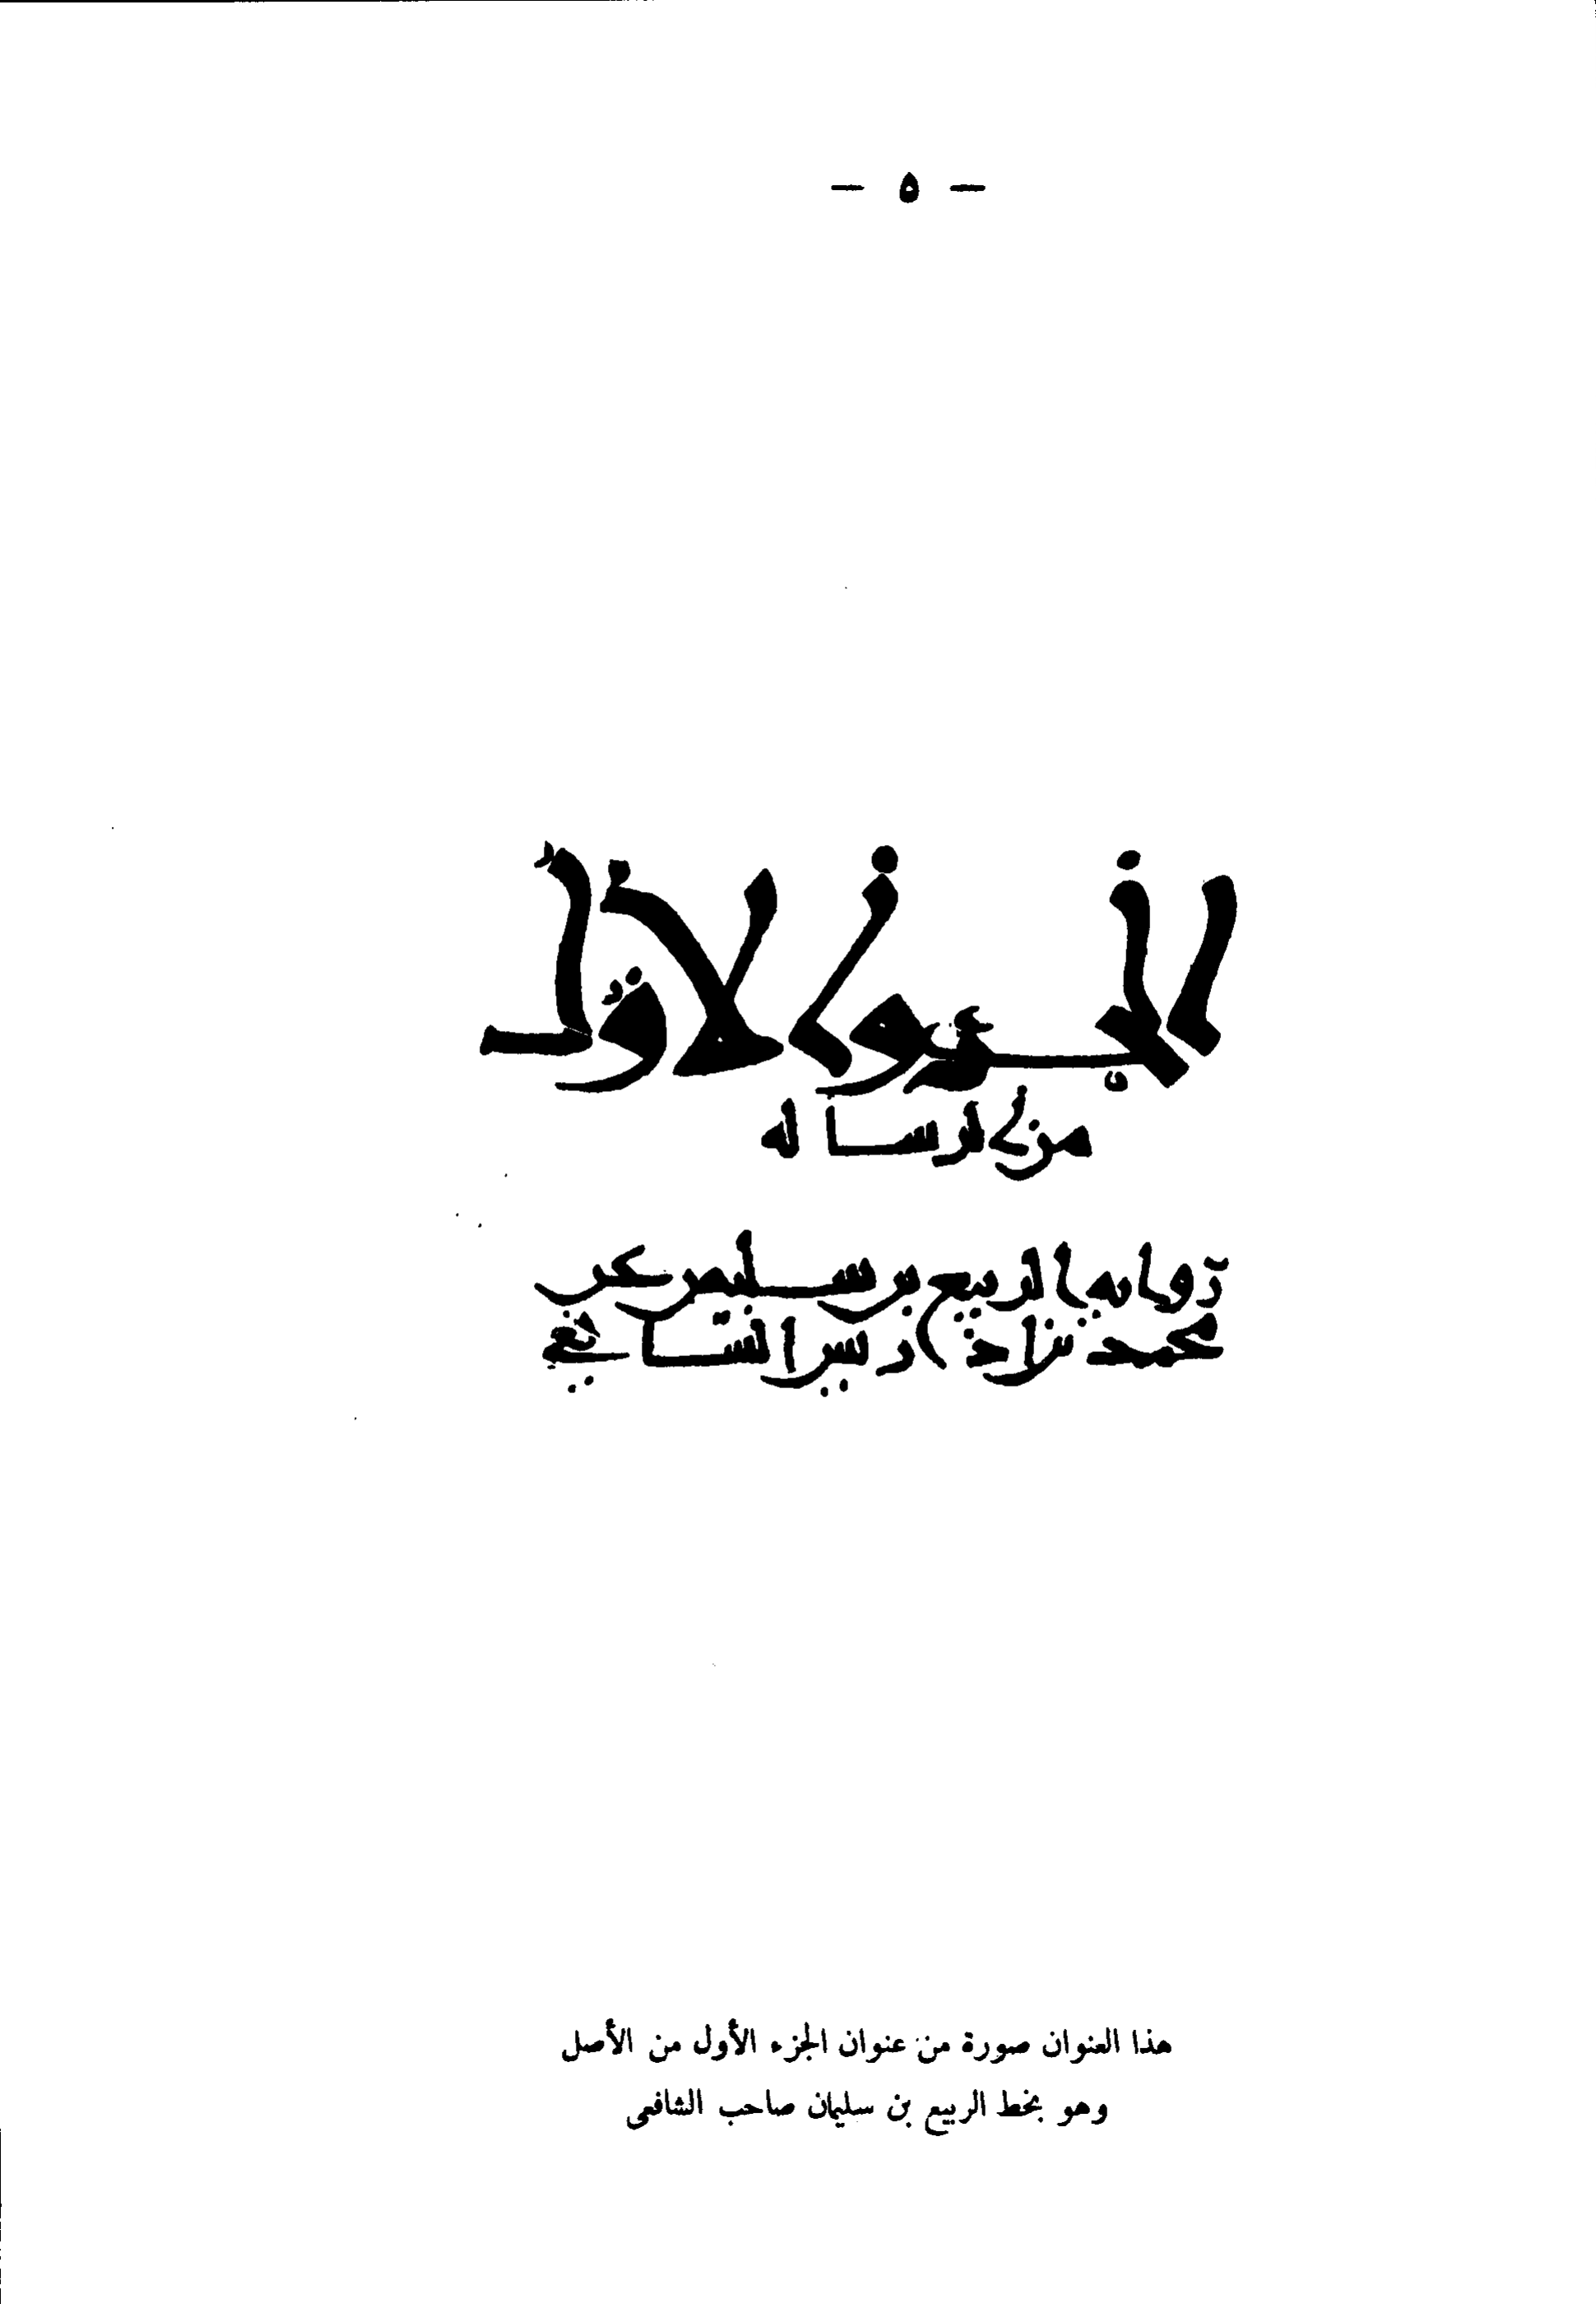 — ٥ —
الجزؤ الاول
من الرساله
رواية الربيع بن سليمن عن
محمد بن ادريس الشافعي
هذا العنوان صورة من عنوان الجزء الأول من الأصل
وهو بخط الربيع بن سليمان صاحب الشافعى